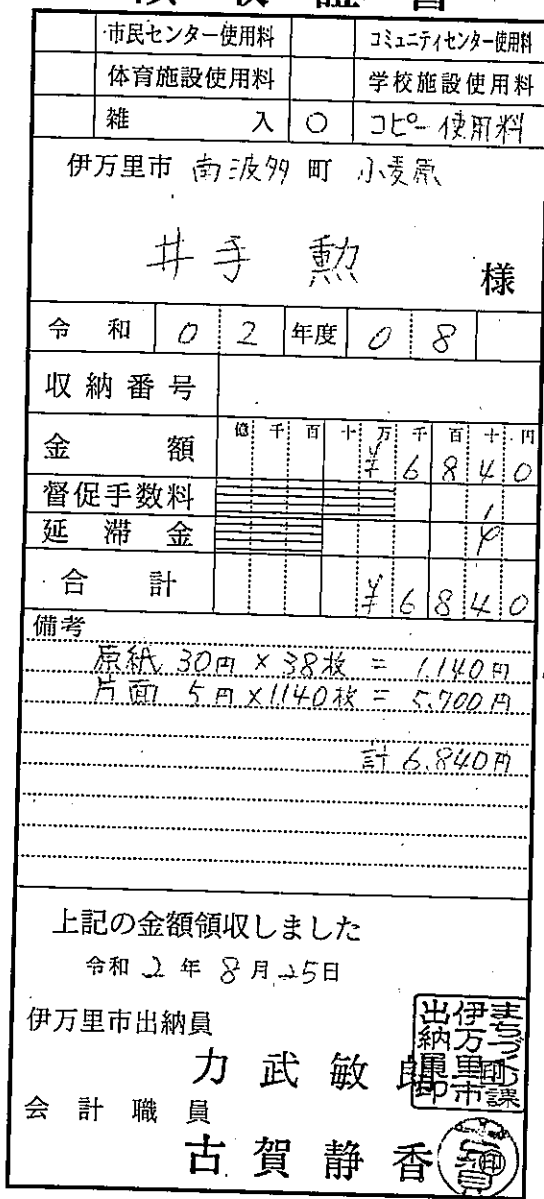 領収証書
市民センター使用料 コミュニティセンター使用料
体育施設使用料 学校施設使用料
雑入 ○ コピー使用料
伊万里市 南波多町 小麦原
井手 勲 様
令和 02 年度 08
収納番号
億 千 百 十 万 千 百 十 円
金額 ¥6840
督促手数料
延滞金
合計 ¥6840
備考
原紙 30円×38枚 = 1,140円
片面 5円×1140枚 = 5,700円
計 6,840円
上記の金額領収しました
令和2年8月25日
伊万里市出納員
力武敏朗
まちづくり課
伊万里市
出納員印
会計職員
古賀静香